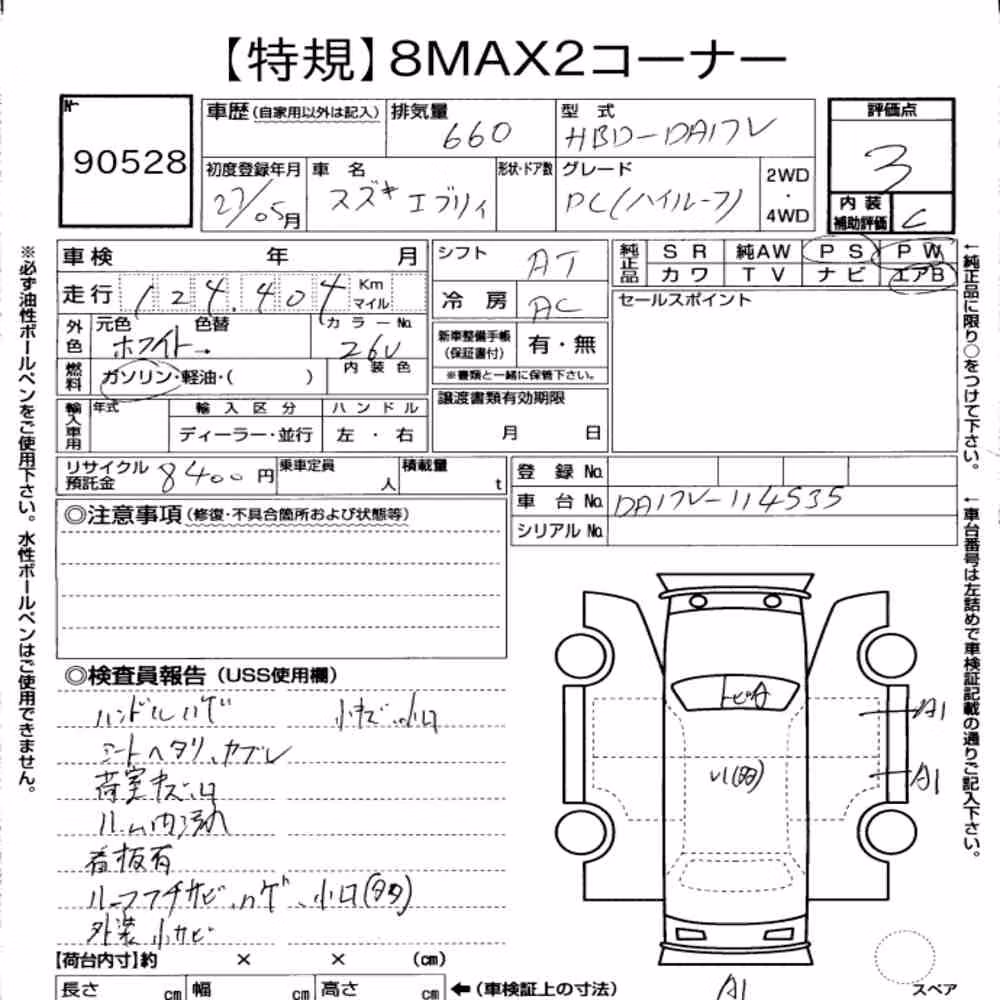 【特規】8MAX2コーナー
No.
90528
車歴 (自家用以外は記入)
排気量
660
型式
HBD-DA17V
評価点
3
初度登録年月
27/05月
車名
スズキ エブリィ
形状・ドア数
グレード
PC(ハイルーフ)
2WD
・
4WD
内装
補助評価
C
車検 年 月
走行 124,404 Km
マイル
外色
元色 色替
ホワイト→
カラーNo.
26U
燃料
ガソリン・軽油・( )
内装色
輸入車用
年式
輸入区分
ディーラー・並行
ハンドル
左・右
シフト
AT
冷房
AC
新車整備手帳
(保証書付)
有・無
※書類と一緒に保管下さい。
譲渡書類有効期限
月 日
純正品
SR 純AW PS PW
カワ TV ナビ エアB
セールスポイント
リサイクル
預託金
8400円
乗車定員
人
積載量
t
登録No.
車台No. DA17V-114535
シリアルNo.
◎注意事項 (修復・不具合箇所および状態等)
◎検査員報告 (USS使用欄)
ハンドルハゲ 小キズ、小凹
シートヘタリ、ヤブレ
荷室キズ凹
ルーム内汚れ
看板有
ルーフフチサビ、ハゲ、小凹(多)
外装小サビ
トビA
(多)
A1
A1
A1
【荷台内寸】約 × × (cm)
長さ cm 幅 cm 高さ cm
←(車検証上の寸法)
スペア
※必ず油性ボールペンをご使用下さい。水性ボールペンはご使用できません。
←純正品に限り○をつけて下さい。
←車台番号は左詰めで車検証記載の通りご記入下さい。